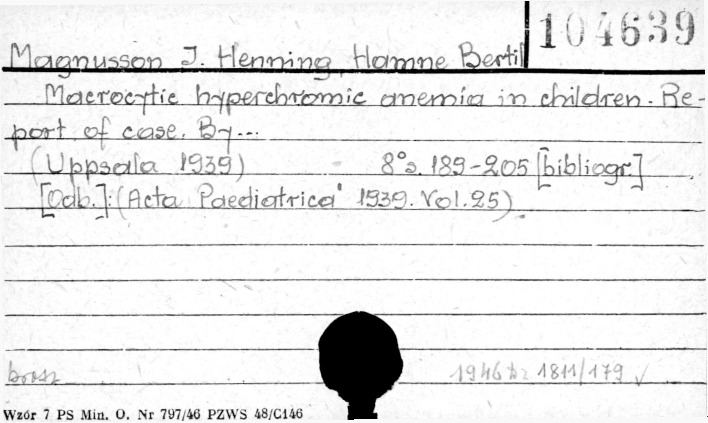 104639
Magnusson J. Henning, Hamne Bertil
Macrocytic hyperchromic anemia in children. Re-
port of case. By...
(Uppsala 1939) 8° s. 189-205 [bibliogr.]
[Odb.]: (Acta Paediatrica' 1939. Vol. 25)
brosz
1946 1811/179 ✓
Wzór 7 PS Min. O. Nr 797/46 PZWS 48/C146